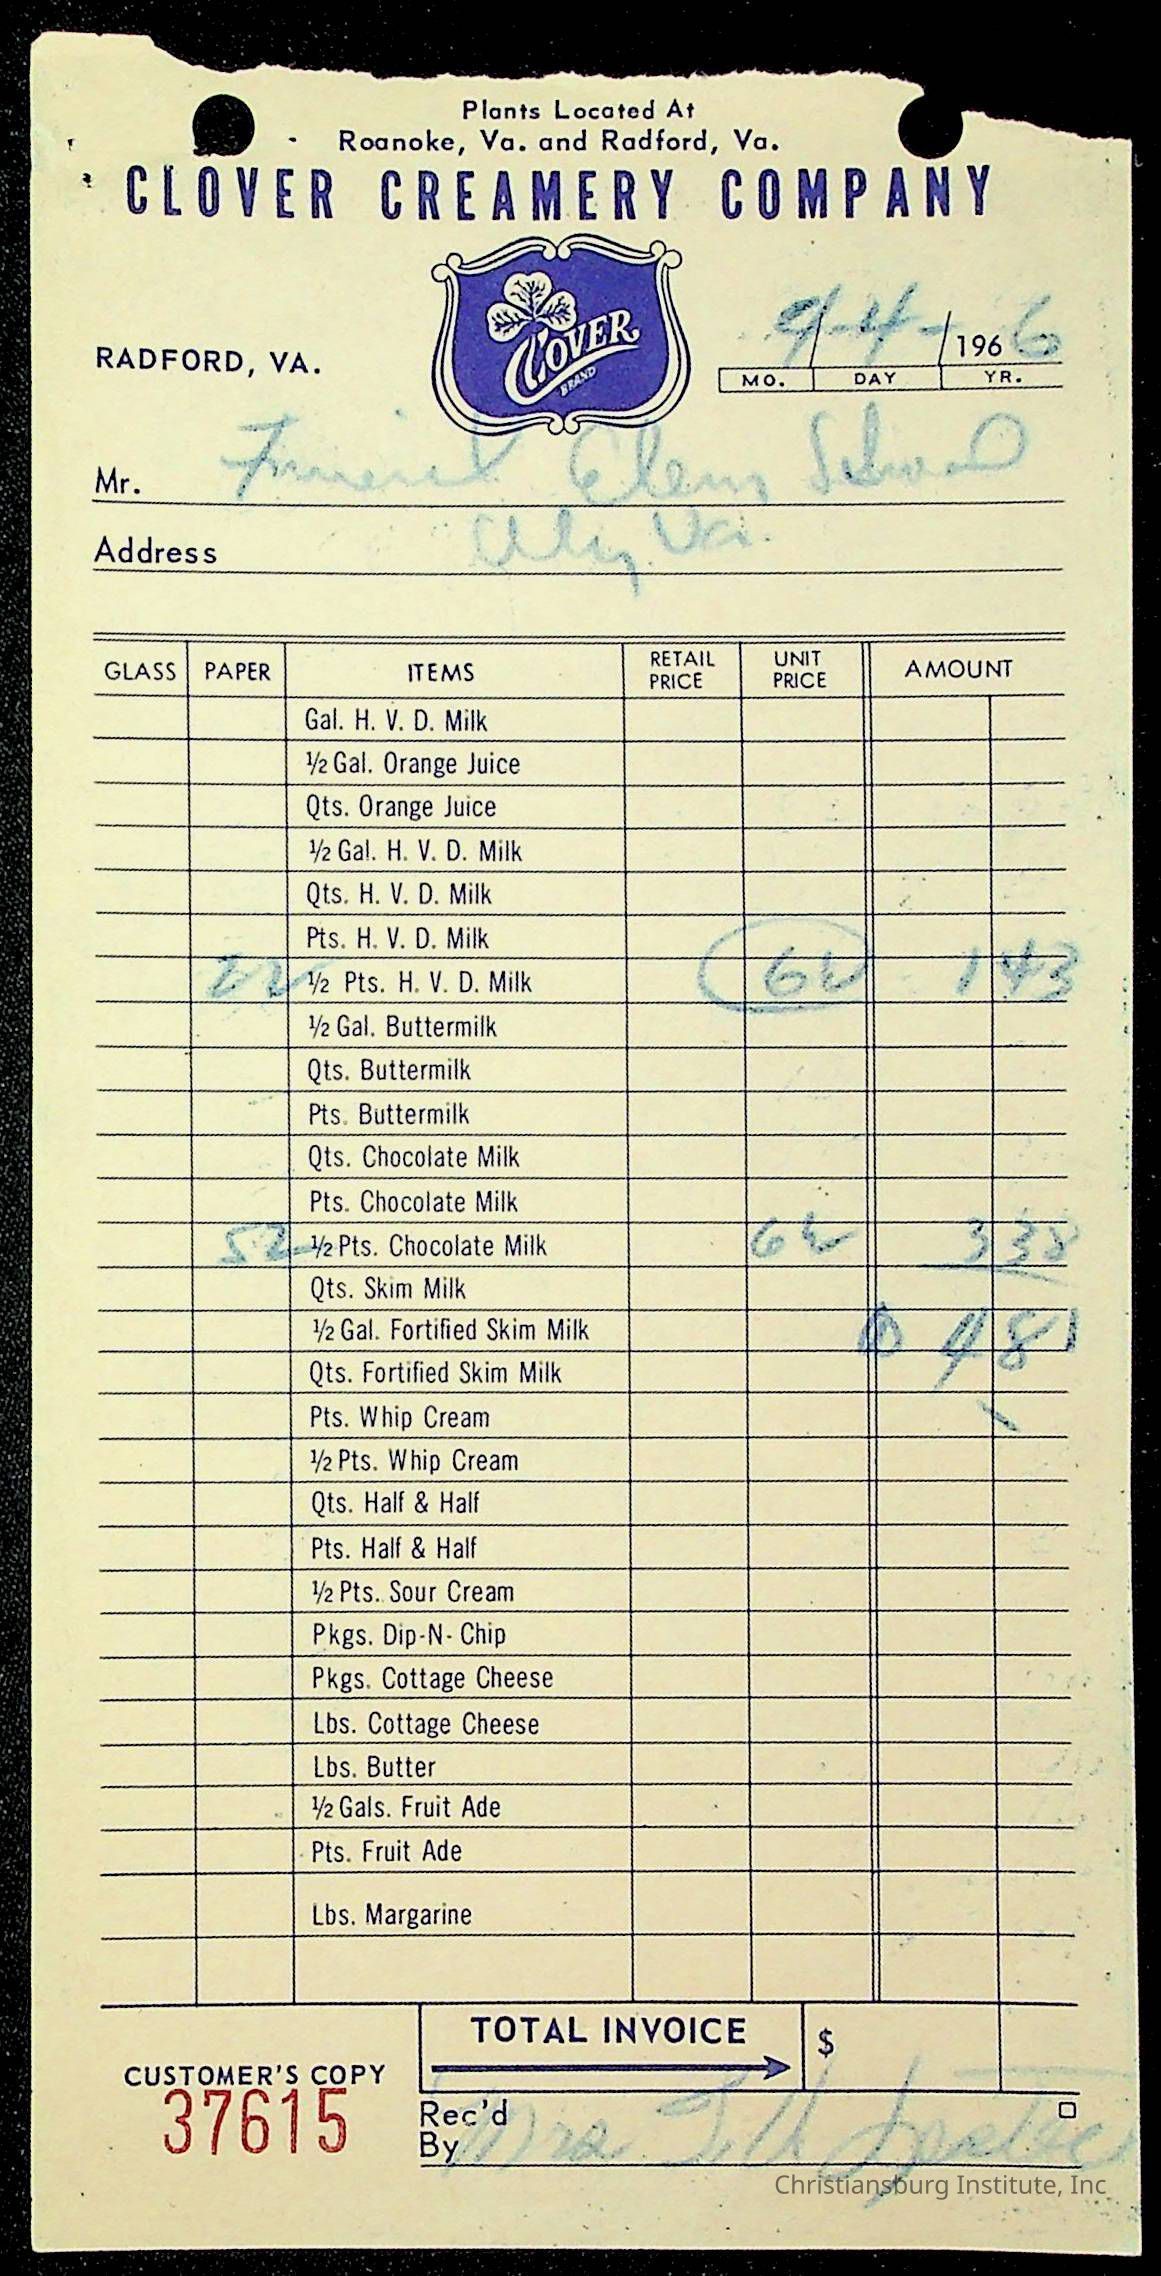 Plants Located At
Roanoke, Va. and Radford, Va.
CLOVER CREAMERY COMPANY
CLOVER
BRAND
RADFORD, VA.
9-4- 1966
MO. DAY YR.
Mr. Elem School
Address Va.
GLASS PAPER ITEMS RETAIL PRICE UNIT PRICE AMOUNT
Gal. H. V. D. Milk
½ Gal. Orange Juice
Qts. Orange Juice
½ Gal. H. V. D. Milk
Qts. H. V. D. Milk
Pts. H. V. D. Milk
22 ½ Pts. H. V. D. Milk 6½ 1 43
½ Gal. Buttermilk
Qts. Buttermilk
Pts. Buttermilk
Qts. Chocolate Milk
Pts. Chocolate Milk
52 ½ Pts. Chocolate Milk 6½ 3 38
Qts. Skim Milk
½ Gal. Fortified Skim Milk 4 81
Qts. Fortified Skim Milk
Pts. Whip Cream
½ Pts. Whip Cream
Qts. Half & Half
Pts. Half & Half
½ Pts. Sour Cream
Pkgs. Dip-N-Chip
Pkgs. Cottage Cheese
Lbs. Cottage Cheese
Lbs. Butter
½ Gals. Fruit Ade
Pts. Fruit Ade
Lbs. Margarine
TOTAL INVOICE $
CUSTOMER'S COPY
37615
Rec'd
By Mrs
Christiansburg Institute, Inc